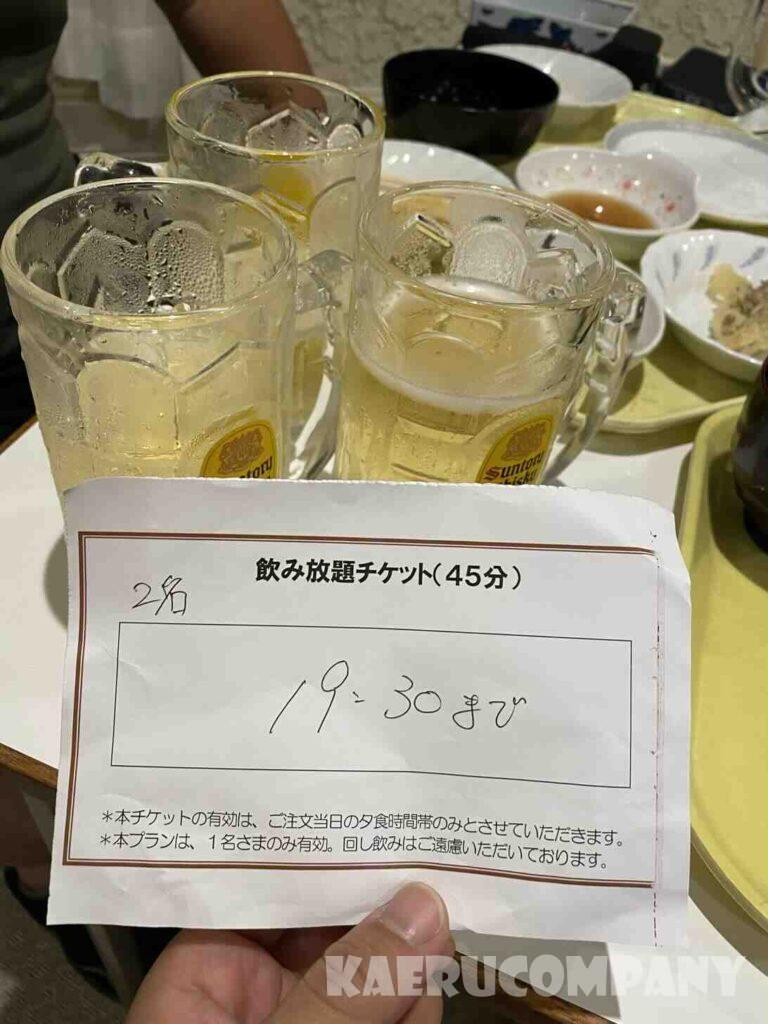 Suntory
Suntory
Whisky
飲み放題チケット(45分)
2名
19:30まで
＊本チケットの有効は、ご注文当日の夕食時間帯のみとさせていただきます。
＊本プランは、１名さまのみ有効。回し飲みはご遠慮いただいております。
KAERUCOMPANY